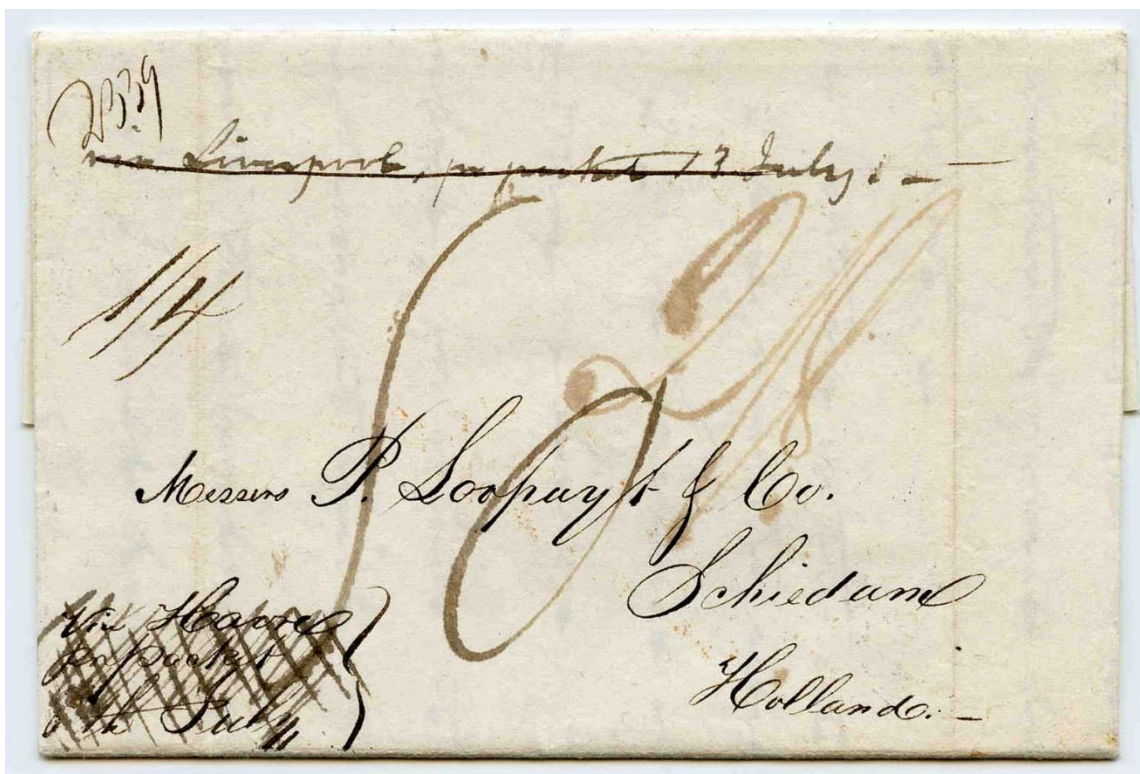 via Liverpool, pr packet 13 July. –
1/4
10
Messers P. Loopuyt & Co.
Schiedam
Holland. –
Via Havre
pr packet
July